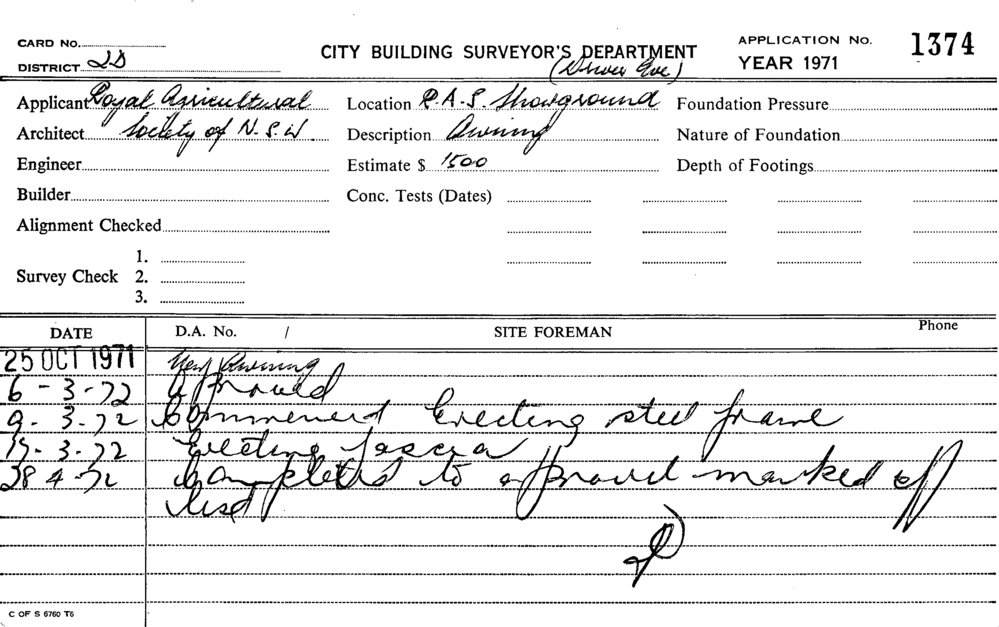 CARD No.
CITY BUILDING SURVEYOR'S DEPARTMENT
APPLICATION No. 1374
DISTRICT 2D
(Driver Ave)
YEAR 1971
Applicant Royal Agricultural
Location R.A.S. Showground
Foundation Pressure
Architect Society of N.S.W
Description Awning
Nature of Foundation
Engineer
Estimate $ 1500
Depth of Footings
Builder
Conc. Tests (Dates)
Alignment Checked
Survey Check
1.
2.
3.
DATE
D.A. No. /
SITE FOREMAN
Phone
25 OCT 1971 New Awning
6-3-72 Approved
9-3-72 Commenced Erecting steel frame
15-3-72 Erecting fascia
28 4-72 Completed to approval marked off
list
C OF S 6760 T6